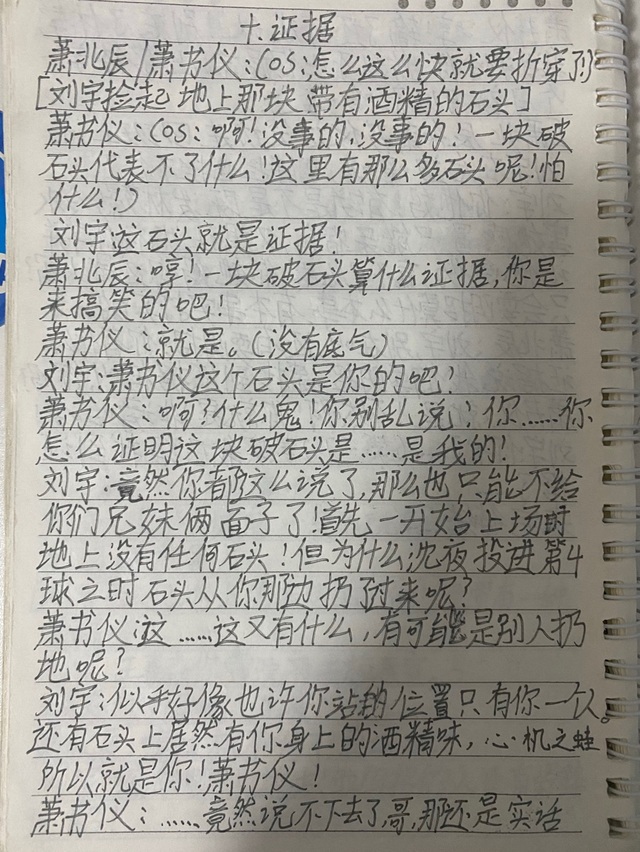 十.证据
萧北辰/萧书仪:(OS:怎么这么快就要折穿了?)
[刘宇捡起地上那块带有酒精的石头]
萧书仪:(OS:啊!没事的,没事的!一块破
石头代表不了什么!这里有那么多石头呢!怕
什么!)
刘宇:这石头就是证据!
萧北辰:哼!一块破石头算什么证据,你是
来搞笑的吧!
萧书仪:就是。(没有底气)
刘宇:萧书仪这个石头是你的吧!
萧书仪:啊?什么鬼!你别乱说!你……你
怎么证明这块破石头是……是我的!
刘宇:竟然你都这么说了,那么也只能不给
你们兄妹俩面子了!首先一开始上场时
地上没有任何石头!但为什么沈夜投进第4
球之时石头从你那边扔了过来呢?
萧书仪:这……这又有什么,有可能是别人扔
地呢?
刘宇:似乎好像也许你站的位置只有你一个人。
还有石头上居然有你身上的酒精味,心机之蛙
所以就是你!萧书仪!
萧书仪:……竟然说不下去了,哥,那还是实话